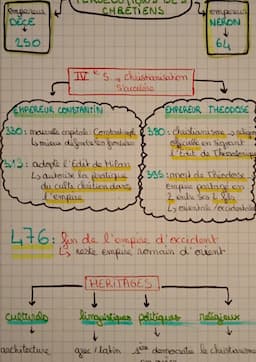 PERSECUTIONS DES
CHRÉTIENS
empereur
DÈCE
250
empereur
NÉRON
64
IVe S. → christianisation
EMPEREUR CONSTANTIN
330: nouvelle capitale Constantinople
↳ mieux défendre les frontières
313: adopte l'Édit de Milan
↳ autorise la pratique
du culte chrétien dans
l'empire
EMPEREUR THEODOSE
380: christianisme → religion
officielle en signant
l'Édit de Thessalonique
395: mort de Théodose
empire partagé en
2 entre ses fils
↳ orientale / occidentale
476: fin de l'empire d'occident
↳ reste empire romain d'orient
HERITAGES
culturels
linguistiques
politiques
religieux
architecture
grec / latin
1ère démocratie
le christianisme